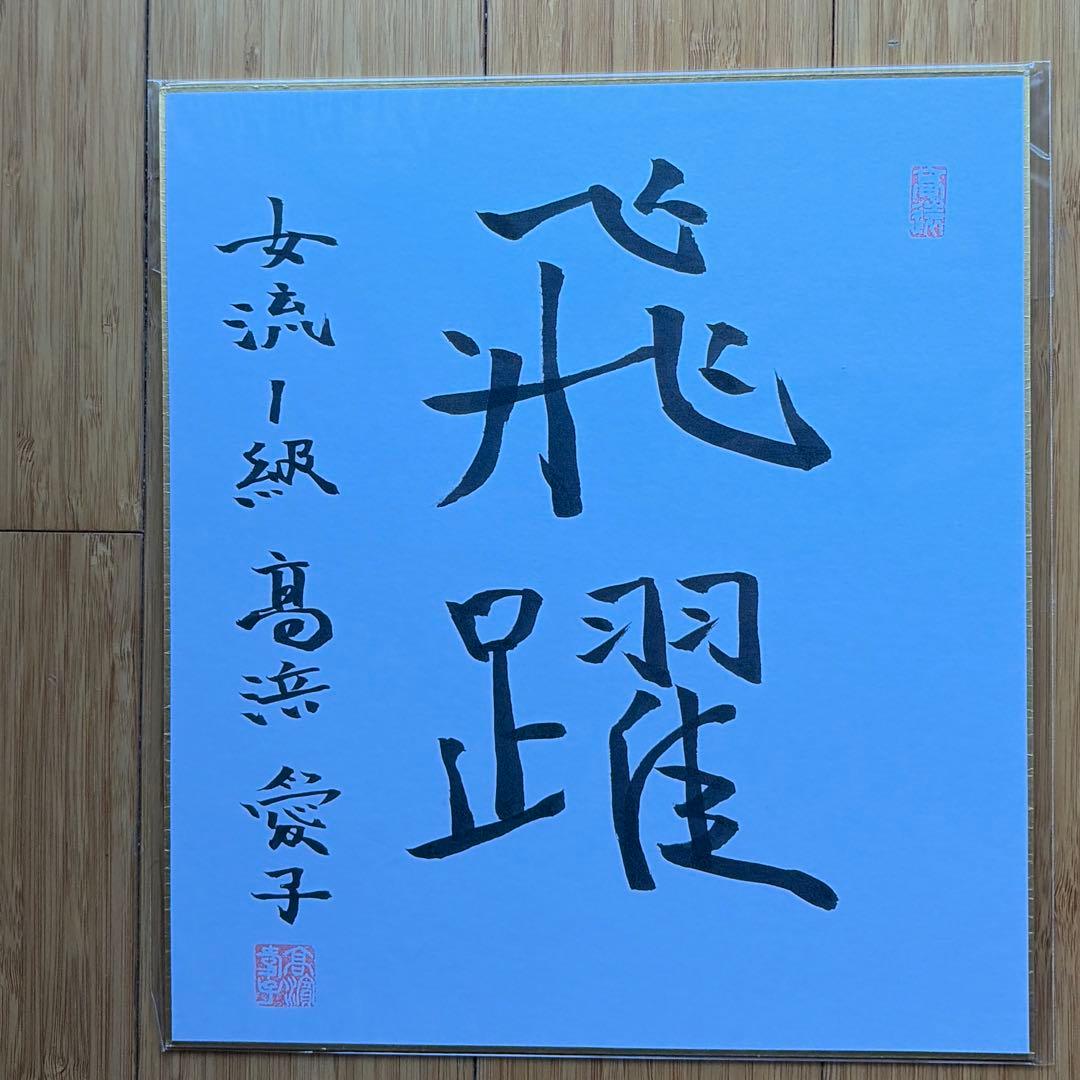 飛躍
女流1級 高浜 愛子